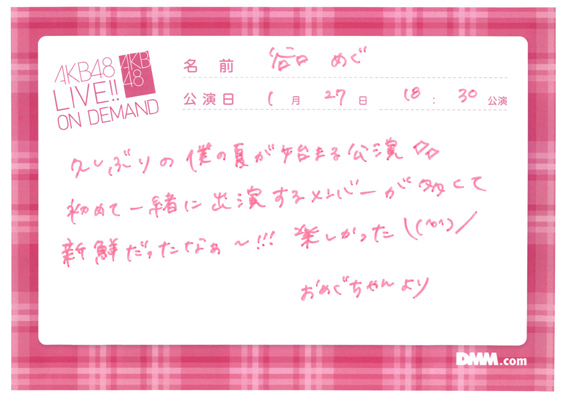 AKB48
LIVE!!
ON DEMAND
AKB
48
名前 谷口 めぐ
公演日 1月 27日 18:30公演
久しぶりの僕の夏が始まる公演
初めて一緒に出演するメンバーが多くて
新鮮だったなぁ〜!!! 楽しかった\(^o^)/
おめぐちゃんより
DMM.com